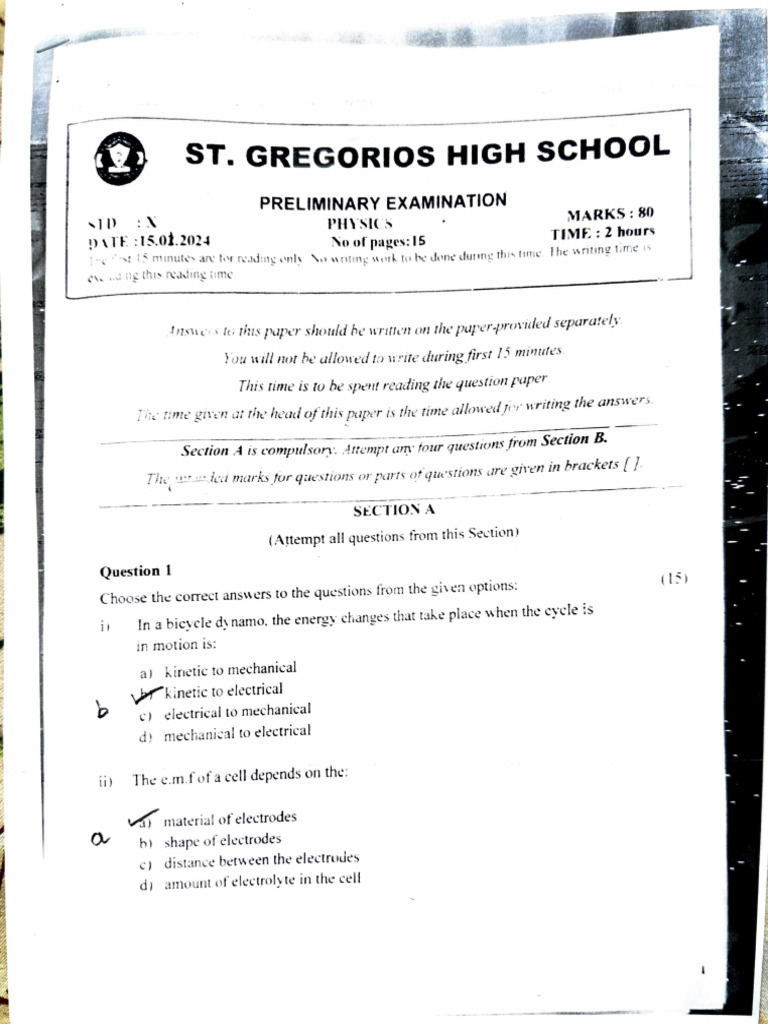 ST. GREGORIOS HIGH SCHOOL
PRELIMINARY EXAMINATION
STD : X PHYSICS MARKS : 80
DATE : 15.01.2024 No of pages: 15 TIME : 2 hours
15 minutes are for reading only. No writing work to be done during this time. The writing time is
this reading time
Answers to this paper should be written on the paper-provided separately.
You will not be allowed to write during first 15 minutes.
This time is to be spent reading the question paper
The time given at the head of this paper is the time allowed for writing the answers.
Section A is compulsory. Attempt any four questions from Section B.
The marks for questions or parts of questions are given in brackets [ ].
SECTION A
(Attempt all questions from this Section)
Question 1
Choose the correct answers to the questions from the given options: (15)
i) In a bicycle dynamo, the energy changes that take place when the cycle is
in motion is:
a) kinetic to mechanical
b) kinetic to electrical
b c) electrical to mechanical
d) mechanical to electrical
ii) The e.m.f of a cell depends on the:
a) material of electrodes
a b) shape of electrodes
c) distance between the electrodes
d) amount of electrolyte in the cell
1